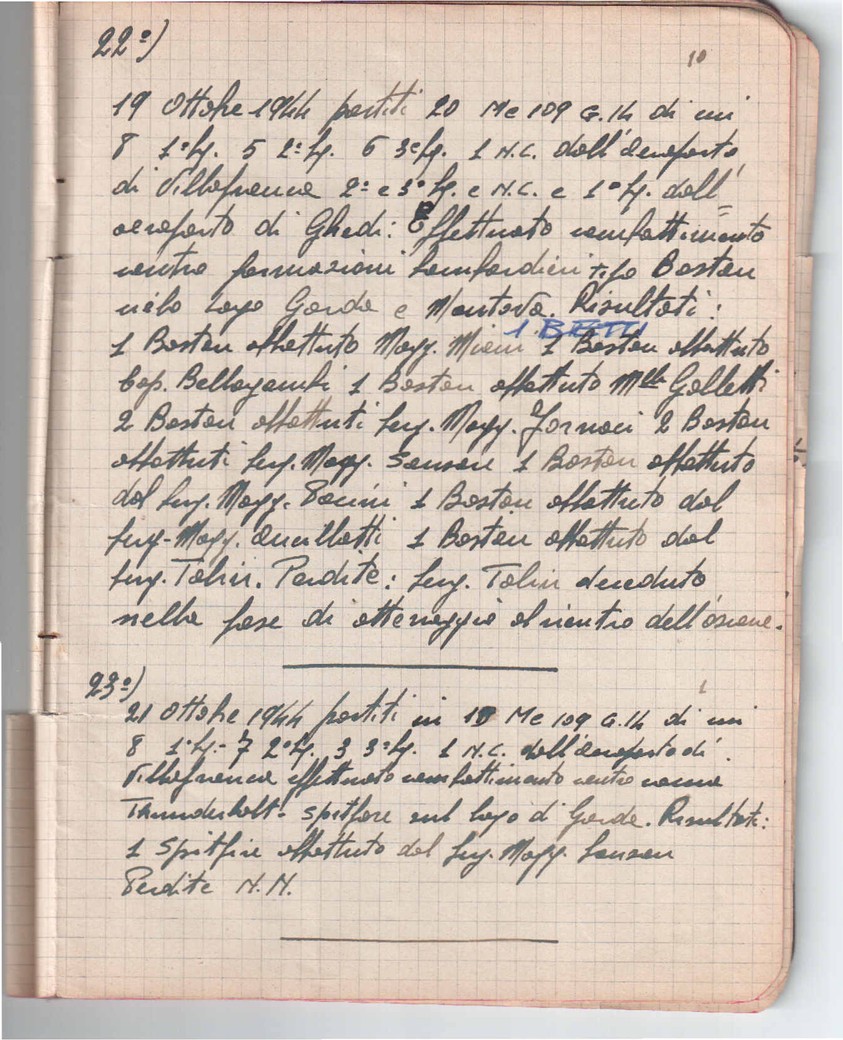 10
22º)
19 Ottobre 1944 partiti 20 Me 109 G.14 di cui
8 1ª Sq. 5 2ª Sq. 6 3ª Sq. 1 N.C. dall'aeroporto
di Villafranca 2ª e 3ª Sq. e N.C. e 1ª Sq. dall'
aeroporto di Ghedi: Effettuato combattimento
contro formazioni bombardieri tipo Boston
cielo Lago Garda e Mantova. Risultati:
1 BEATTI
1 Boston abbattuto Magg. Miani 1 Boston abbattuto
Cap. Bellagambi 1 Boston abbattuto Mllo Galletti
2 Boston abbattuti Serg. Magg. Fornaci 2 Boston
abbattuti Serg. Magg. Sanson 1 Boston abbattuto
dal Serg. Magg. Pacini 1 Boston abbattuto dal
Serg-Magg. Ancillotti 1 Boston abbattuto dal
Serg. Tolin. Perdite: Serg. Tolin deceduto
nella fase di atterraggio al rientro dell'azione.
23º)
21 Ottobre 1944 partiti in 19 Me 109 G.14 di cui
8 1ª Sq.- 7 2ª Sq. 3 3ª Sq. 1 N.C. dall'aeroporto di
Villafranca effettuato combattimento contro caccia
Thunderbolt- Spitfire sul lago di Garda. Risultati:
1 Spitfire abbattuto dal Serg. Magg. Sanson
Perdite N.N.